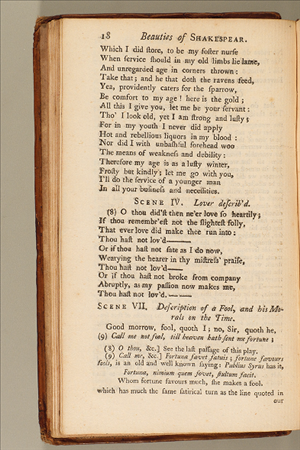 18 Beauties of SHAKESPEAR.
Which I did ſtore, to be my foſter nurſe
When ſervice ſhould in my old limbs lie lame,
And unregarded age in corners thrown:
Take that; and he that doth the ravens feed,
Yea, providently caters for the ſparrow,
Be comfort to my age! here is the gold;
All this I give you, let me be your ſervant:
Tho' I look old, yet I am ſtrong and luſty;
For in my youth I never did apply
Hot and rebellious liquors in my blood:
Nor did I with unbaſhful forehead woo
The means of weakneſs and debility:
Therefore my age is as a luſty winter,
Froſty but kindly; let me go with you,
I'll do the ſervice of a younger man
In all your buſineſs and neceſſities.
SCENE IV. Lover deſcrib'd.
(8) O thou did'ſt then ne'er love ſo heartily;
If thou remembe'eſt not the ſlighteſt folly,
That ever love did make thee run into:
Thou haſt not lov'd———
Or if thou haſt not ſate as I do now,
Wearying the hearer in thy miſtreſs' praiſe,
Thou haſt not lov'd——
Or if thou haſt not broke from company
Abruptly, as my paſſion now makes me,
Thou haſt not lov'd. — — —
SCENE VII. Deſcription of a Fool, and his Mo-
rals on the Time.
Good morrow, fool, quoth I; no, Sir, quoth he,
(9) Call me not fool, till heaven hath ſent me fortune;
(8) O thou, &c.] See the laſt paſſage of this play.
(9) Call me, &c.] Fortuna favet fatuis; fortune favours
fools, is an old and well known ſaying: Publius Syrus has it,
Fortuna, nimium quem fovet, ſtultum facit.
Whom fortune favours much, ſhe makes a fool.
which has much the ſame ſatirical turn as the line quoted in
our